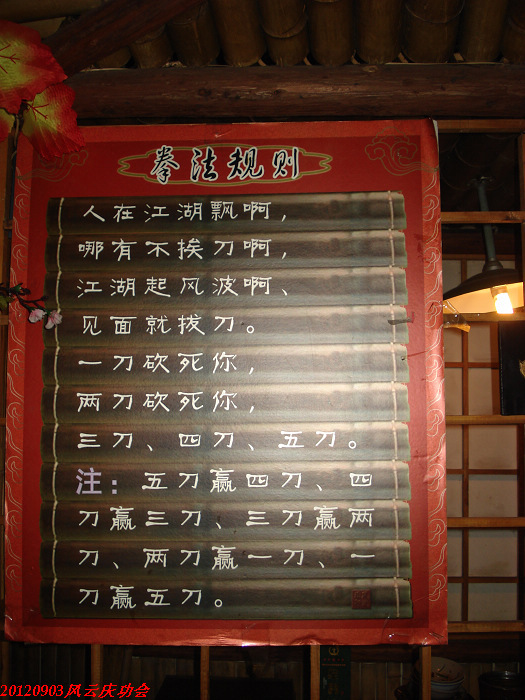 拳法规则
人在江湖飘啊，
哪有不挨刀啊，
江湖起风波啊、
见面就拔刀。
一刀砍死你，
两刀砍死你，
三刀、四刀、五刀。
注：五刀赢四刀、四
刀赢三刀、三刀赢两
刀、两刀赢一刀、一
刀赢五刀。
20120903风云庆功会